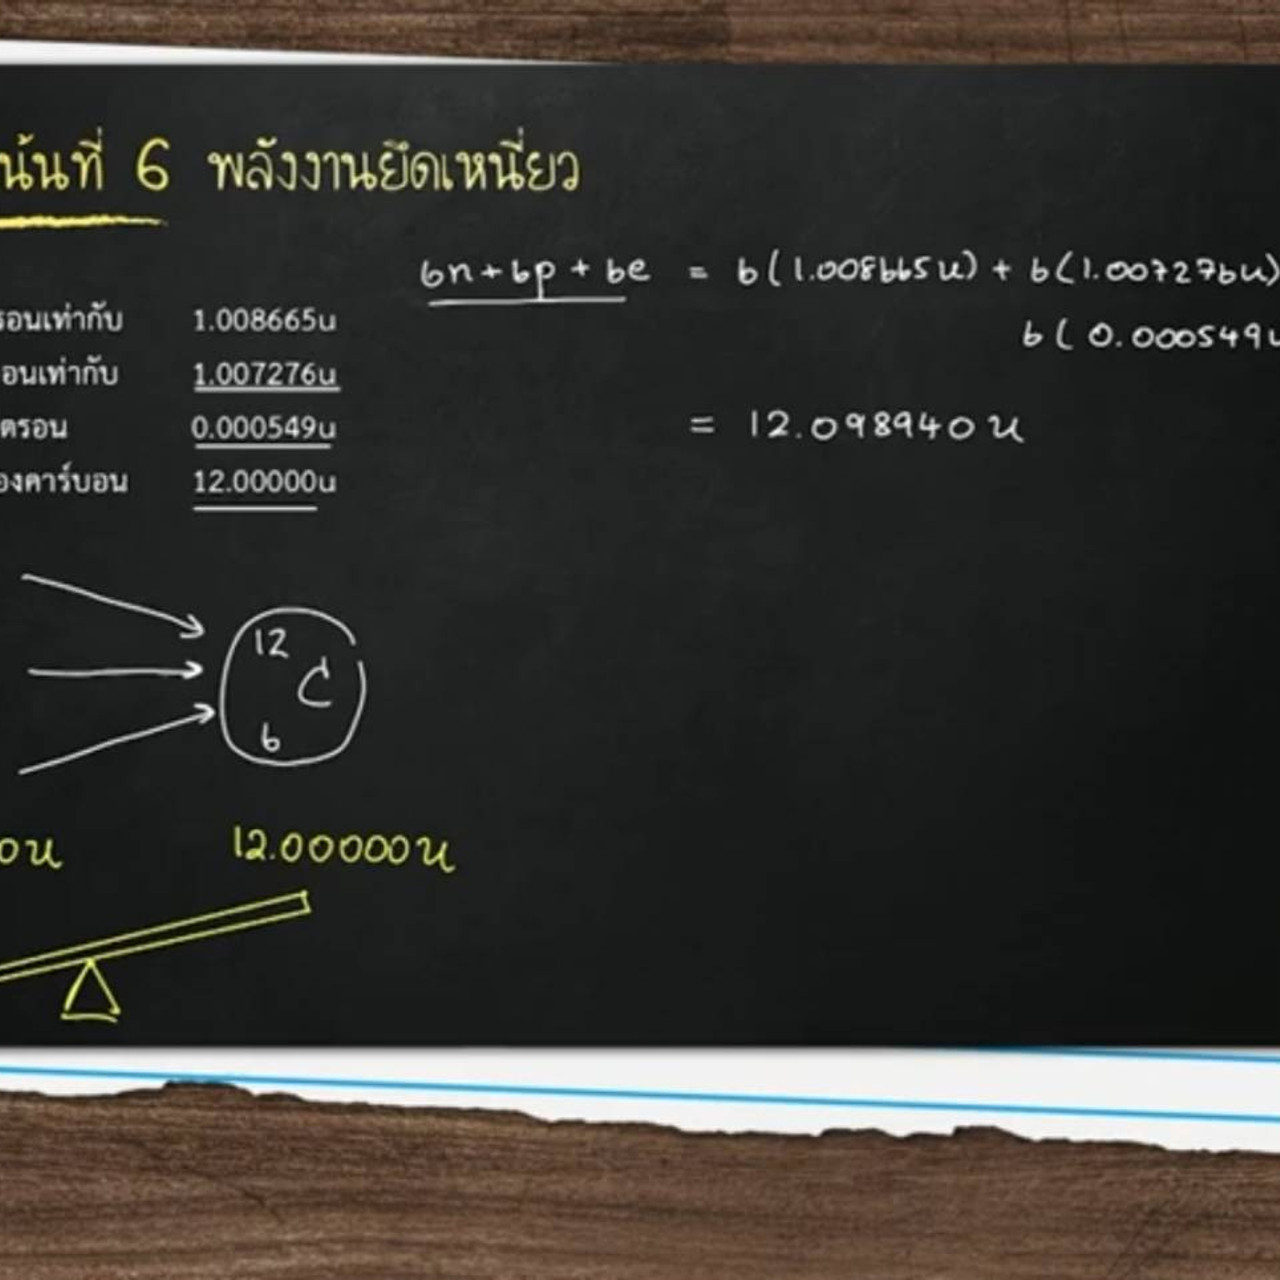 น้นที่ 6 พลังงานยึดเหนี่ยว
6n + 6p + 6e = 6(1.008665u) + 6(1.007276u)
6(0.000549u
= 12.098940u
รอนเท่ากับ 1.008665u
อนเท่ากับ 1.007276u
ตรอน 0.000549u
องคาร์บอน 12.00000u
12
C
6
0u 12.00000u